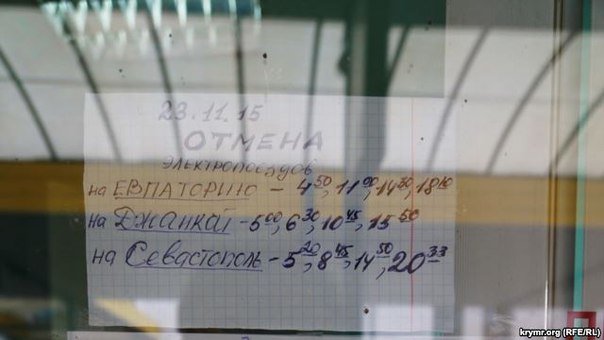 23.11.15
ОТМЕНА
ЭЛЕКТРОПОЕЗДОВ
на ЕВПАТОРИЮ - 4 50, 11 00, 14 30, 18 10
на Джанкой - 5 00, 6 30, 10 45, 15 50
на Севастополь - 5 20, 8 45, 14 50, 20 33
krymr.org (RFE/RL)